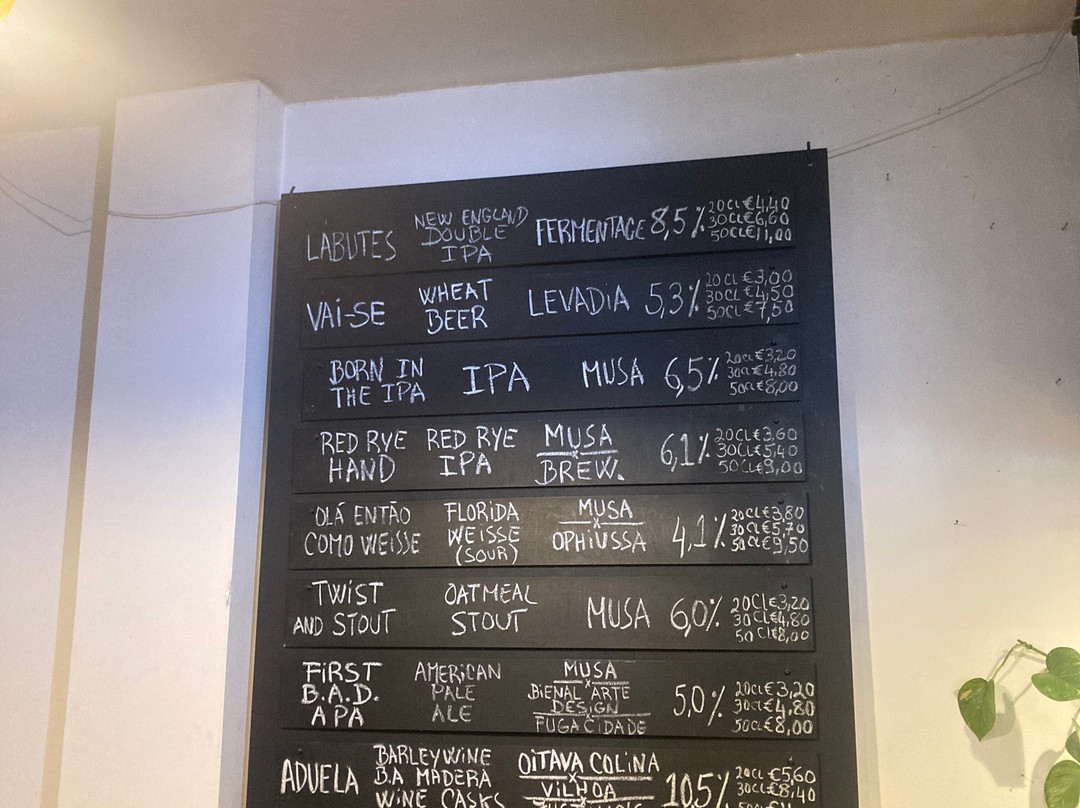 LABUTES NEW ENGLAND DOUBLE IPA FERMENTAGE 8,5% 20CL €4,40 30CL €6,60 50CL €11,00
VAI-SE WHEAT BEER LEVADIA 5,3% 20CL €3,00 30CL €4,50 50CL €7,50
BORN IN THE IPA IPA MUSA 6,5% 20CL €3,20 30CL €4,80 50CL €8,00
RED RYE HAND RED RYE IPA MUSA x BREW. 6,1% 20CL €3,60 30CL €5,40 50CL €9,00
OLÁ ENTÃO COMO WEISSE FLORIDA WEISSE (SOUR) MUSA x OPHIUSSA 4,1% 20CL €3,80 30CL €5,70 50CL €9,50
TWIST AND STOUT OATMEAL STOUT MUSA 6,0% 20CL €3,20 30CL €4,80 50CL €8,00
FIRST B.A.D. APA AMERICAN PALE ALE MUSA x BIENAL ARTE DESIGN x FUGACIDADE 5,0% 20CL €3,20 30CL €4,80 50CL €8,00
ADUELA BARLEYWINE B.A MADERA WINE CASKS OITAVA COLINA x VILHOA 10,5% 20CL €5,60 30CL €8,40